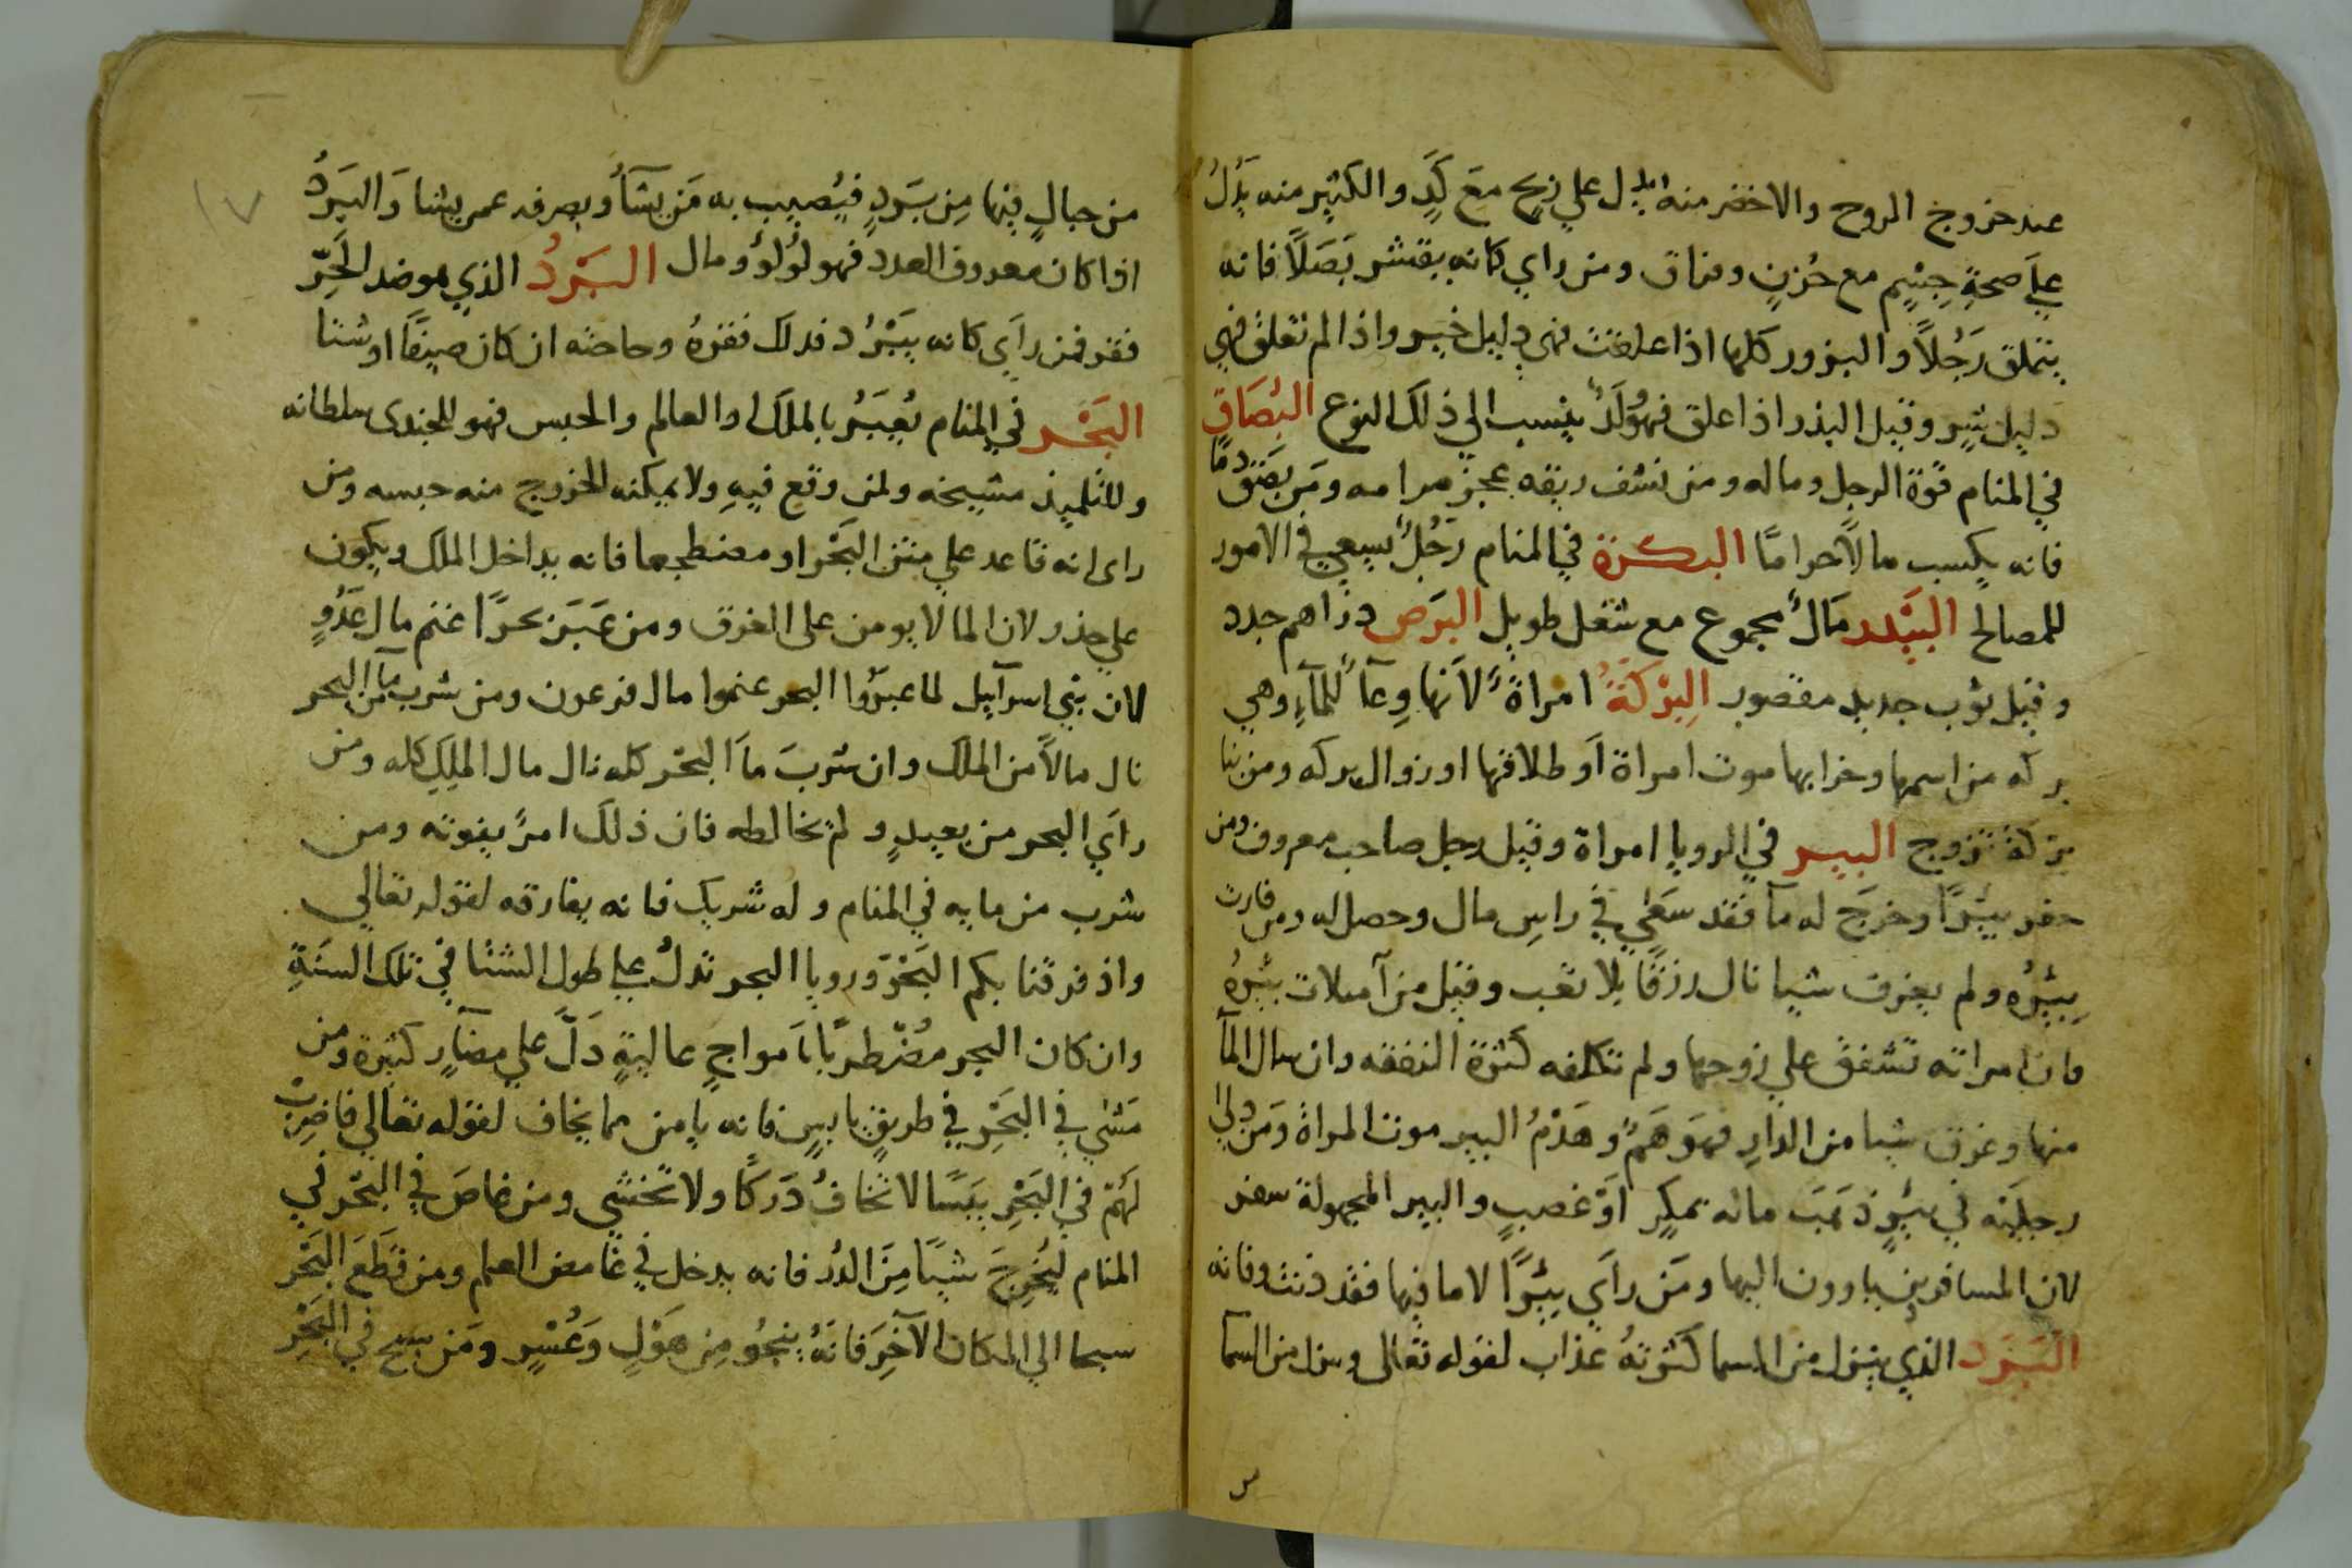 عند خروج الروح والاخضر منه يدل علي زبح مع كَدٍ والكثير منه يَدُلُ
علي صحةِ جِسْمٍ مع حُزنٍ وفراق ومن راي كانه يقشر بَصَلًا فانه
يتملق رَجُلًا والبزور كلها اذا علقت فهي دليل خير واذا لم تعلق فهي
دليل شرٍ وقيل البذر اذا علق فهو وَلَدٌ ينسب الي ذلك النوع البُصَاق
في المنام قوة الرجل وماله ومن نشف ريقه عجز مرامه ومَن بَصَقَ دمًا
فانه يكسب مالًا حرامًا البكرة في المنام رَجُلٌ يسعي في الامور
للمصالح البَيْدر مَالٌ مجموع مع شغل طويل البَرَص دراهم جدد
وقيل ثوب جديد مقصور البِرْكَةُ امراةٌ لاَنها وِعآٌ للمآءِ وهي
بركه من اسمها وخرابها موت امراة اَو طلاقها اوزوال بركه ومن بنا
بركة تزوج البير في الرويا امراة وقيل رجل صاحب معروف ومن
حفر بيئرًا وخرجَ له مآ فقد سَعَي في راسِ مال وحصل له ومن فارت
بِيئرُه ولم يغرق شيا نال رزقًا بلا تعب وقيل من آمتلات بئرُهُ
فان امراته تشفق علي زوجها ولم تكلفه كثرة النفقه وان سال المآ
منها وغرق شيا من الدارِ فهوَ هَمٌ وهَدْمُ البير موت المراة ومَن دلي
رجليَه في بئرٍ ذهَبَ ماله بمكرٍ اَوْ غصبٍ والبير المجهولة سفر
لان المسافرين ياوون اليها ومَن راَي بِيْرًا لا ما فيها فقد دنت وفاته
البَرَد الذي ينزل من السما كثرتهُ عذاب لقوله تعالي وينزل من السمآ
من جبالٍ فيها مِن بَرَدٍ فيُصيب به مَن يشآُ ويصرفه عمن يشا وَالبَرَدُ
اذا كان معروف العدد فهو لؤلؤ ومال البَرْدُ الذي هو ضد الحَرّ
فقر فمن راَي كانه يبَرُد فذلك فقرهُ وحاجته ان كان صيفًا اوشتا
البَحْر في المنام يُعبَرُ بالملك او العالم والحبس فهو للجندي سلطانه
وللتلميذ مشيخه ولمن وقع فيهِ ولا يمكنه الخروج منه حبسه ومن
راى انه قاعد علي متن البَحْر او مضطجعا فانه يداخل الملك ويكون
علي حذر لان الما لا يومن على الغرق ومن عَبَرَ بحرًا غنم مال عَدُوٍ
لان بني اسرآييل لما عبرُوا البحر غنموا مال فرعون ومن شرب مآ من البحر
نال مالاً من الملك وان شربَ ماَ البحْر كله نال مال الملِكِ كله ومن
راَي البحر من بعيدٍ ولم يخالطه فان ذلك امرًا يفوته ومن
شرب من مايه في المنام وله شريك فانه يفارقه لقوله تعالي
واذ فرقنا بكم البَحْرَ ورويا البحر تدلُ علي طول الشتا في تلك السَنَةِ
وان كان البحر مضْطربًا باَمواجٍ عاليةٍ دَلَّ علي مضآرٍ كثيرة ومن
مَشي في البَحْرِ في طريقٍ يابسٍ فانه يامن مما يخاف لقوله تعالي فاضربْ
لَهُمْ في البَحْرِ يبَسًا لا تخافُ دَركًا ولا تخشي ومن غاصَ في البَحْر في
المنام ليُخرجَ شيًا مِنَ الدُر فانه يدخل في غامض العلم ومن قَطَعَ البَحْر
سبحا الي المكان الآخِرَ فانهُ ينجُو مِن هَوْلٍ وَعُسْرٍ ومَن سبح في البَحْرِ